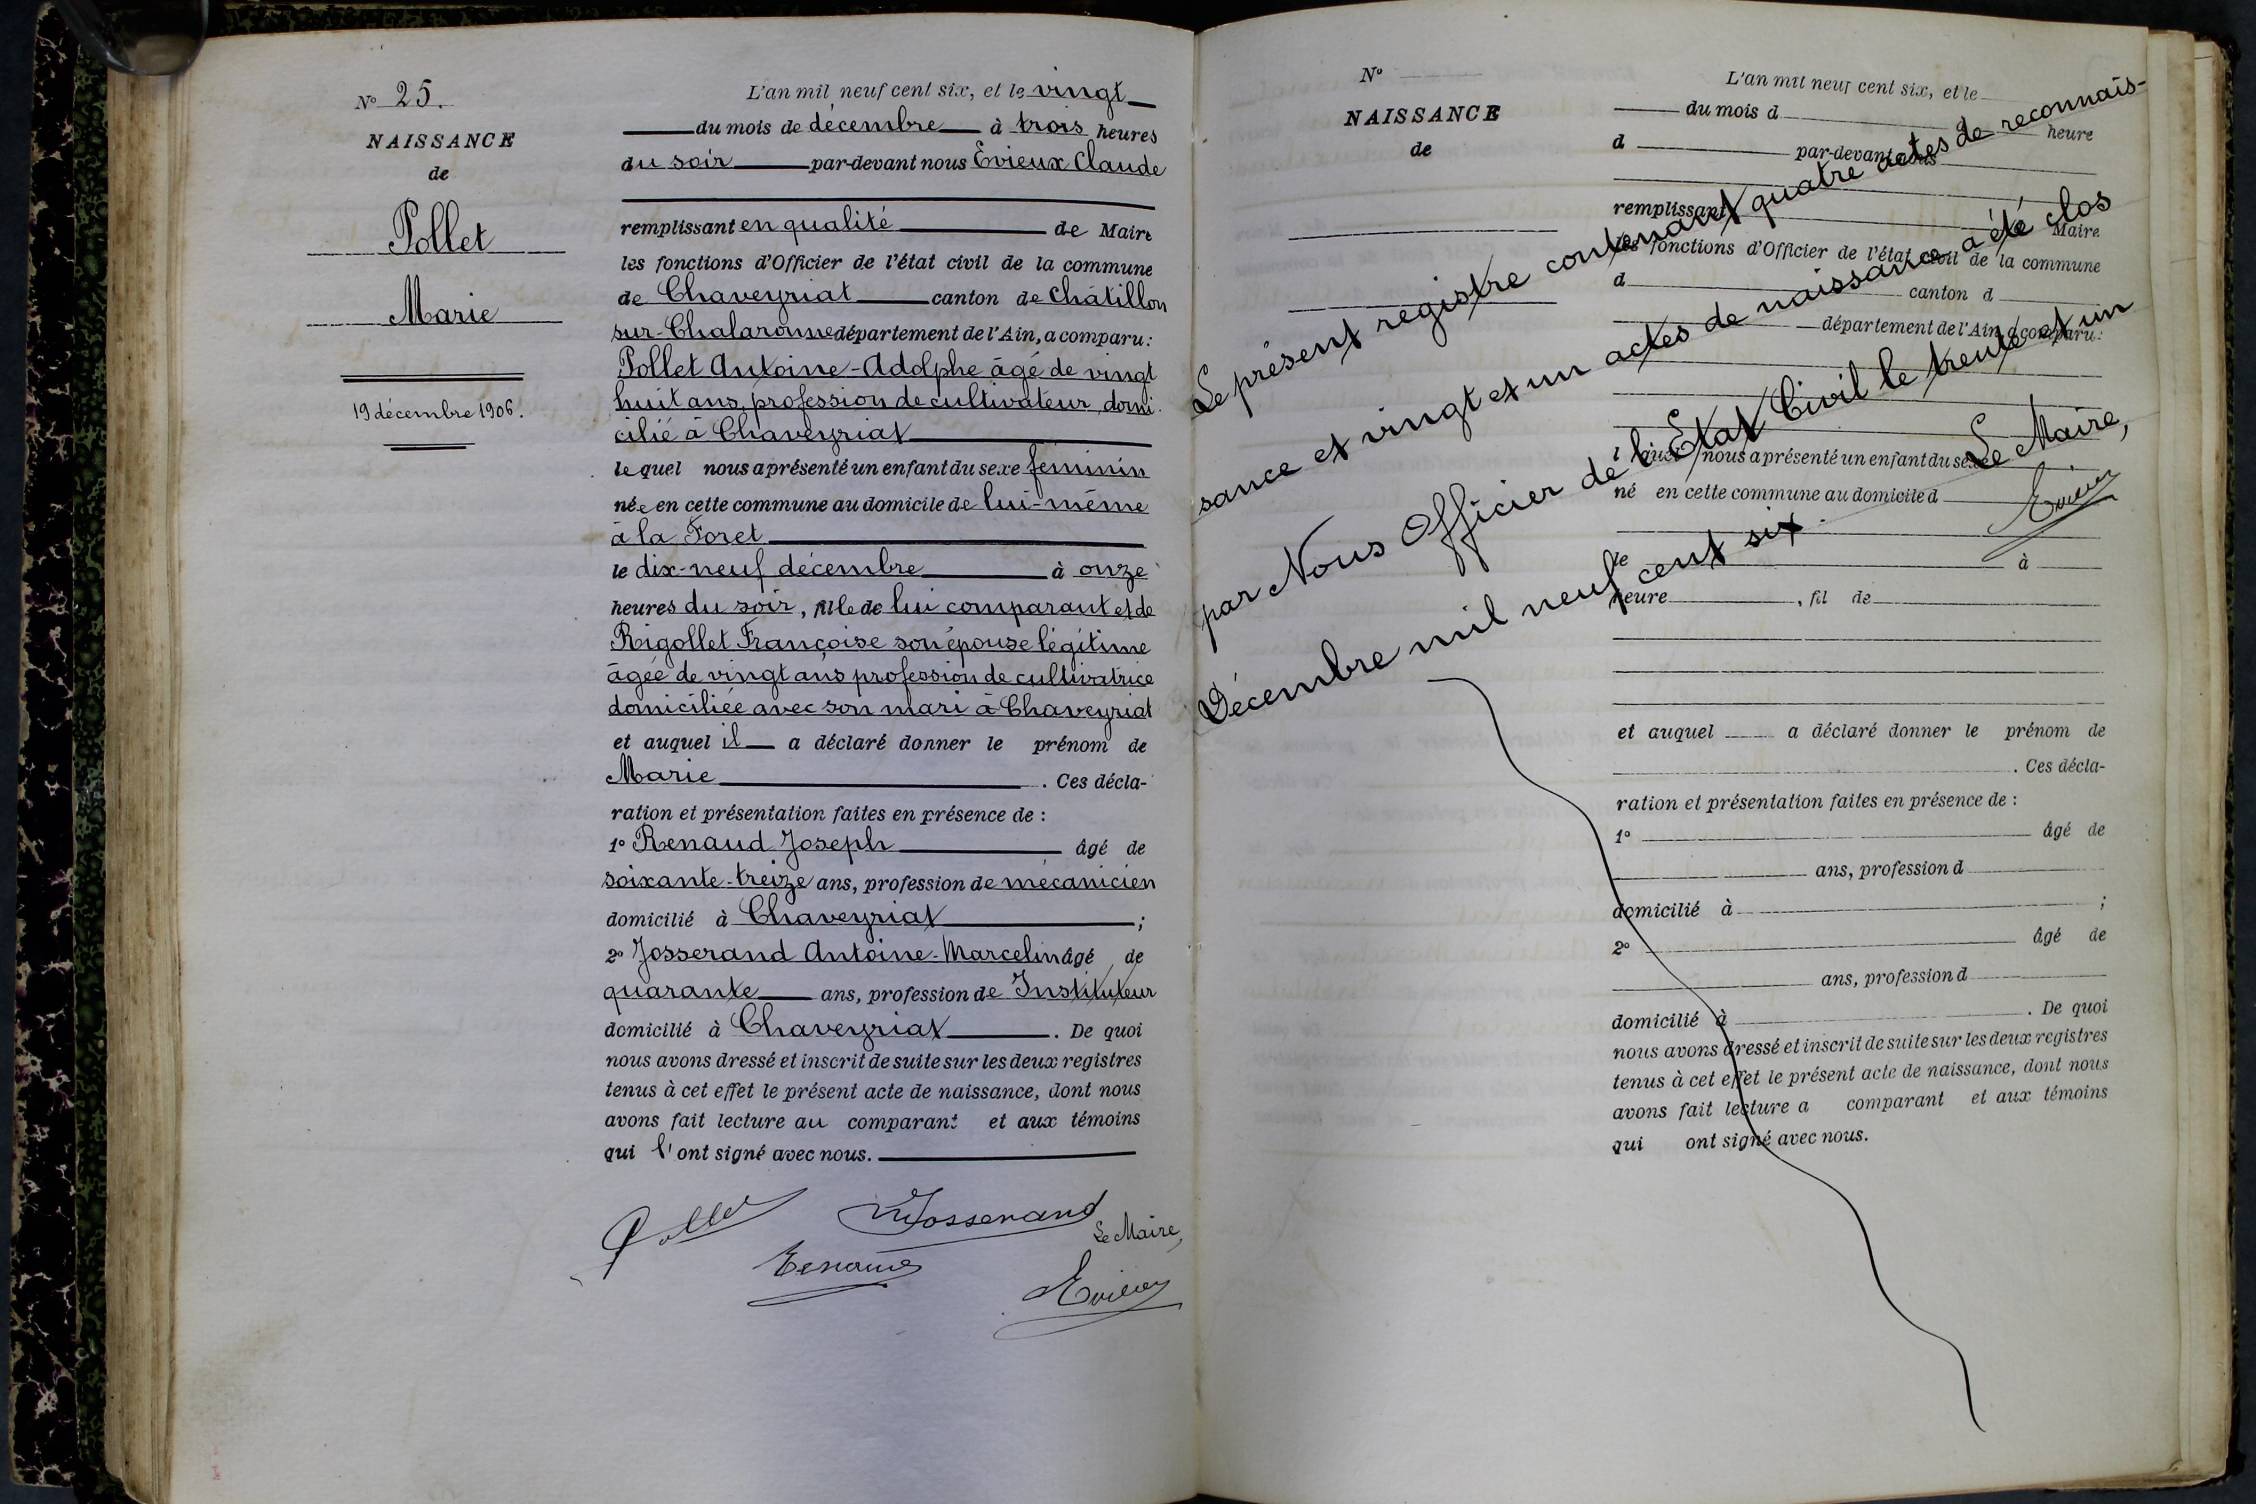 N° 25.
NAISSANCE
de
Pollet
Marie
19 décembre 1906.
L'an mil neuf cent six, et le vingt
du mois de décembre à trois heures
du soir par-devant nous Evieux Claude
remplissant en qualité de Maire
les fonctions d'Officier de l'état civil de la commune
de Chaveyriat canton de Châtillon
sur-Chalaronne département de l'Ain, a comparu :
Pollet Antoine-Adolphe âgé de vingt
huit ans, profession de cultivateur, domi-
cilié à Chaveyriat
lequel nous a présenté un enfant du sexe féminin
née en cette commune au domicile de lui-même
à la Foret
le dix-neuf décembre à onze
heures du soir, fille de lui comparant et de
Rigollet Françoise son épouse légitime
âgée de vingt ans profession de cultivatrice
domiciliée avec son mari à Chaveyriat
et auquel il a déclaré donner le prénom de
Marie . Ces décla-
ration et présentation faites en présence de :
1° Renaud Joseph âgé de
soixante-treize ans, profession de mécanicien
domicilié à Chaveyriat ;
2° Josserand Antoine-Marcelin âgé de
quarante ans, profession de Instituteur
domicilié à Chaveyriat . De quoi
nous avons dressé et inscrit de suite sur les deux registres
tenus à cet effet le présent acte de naissance, dont nous
avons fait lecture au comparant et aux témoins
qui l'ont signé avec nous.
Pollet
Josserand
Renaud
Le Maire,
Evieux
N°
NAISSANCE
de
L'an mil neuf cent six, et le
du mois d heure
d par-devant nous
remplissant Maire
les fonctions d'Officier de l'état civil de la commune
d canton d
département de l'Ain, a comparu :
l quel nous a présenté un enfant du sexe
né en cette commune au domicile d
le à
heure , fil de
et auquel a déclaré donner le prénom de
. Ces décla-
ration et présentation faites en présence de :
1° âgé de
ans, profession d
domicilié à ;
2° âgé de
ans, profession d
domicilié à . De quoi
nous avons dressé et inscrit de suite sur les deux registres
tenus à cet effet le présent acte de naissance, dont nous
avons fait lecture a comparant et aux témoins
qui ont signé avec nous.
Le présent registre contenant quatre actes de reconnais-
sance et vingt et un actes de naissance, a été clos
par Nous Officier de l'Etat Civil le trente et un
Décembre mil neuf cent six.
Le Maire,
Evieux